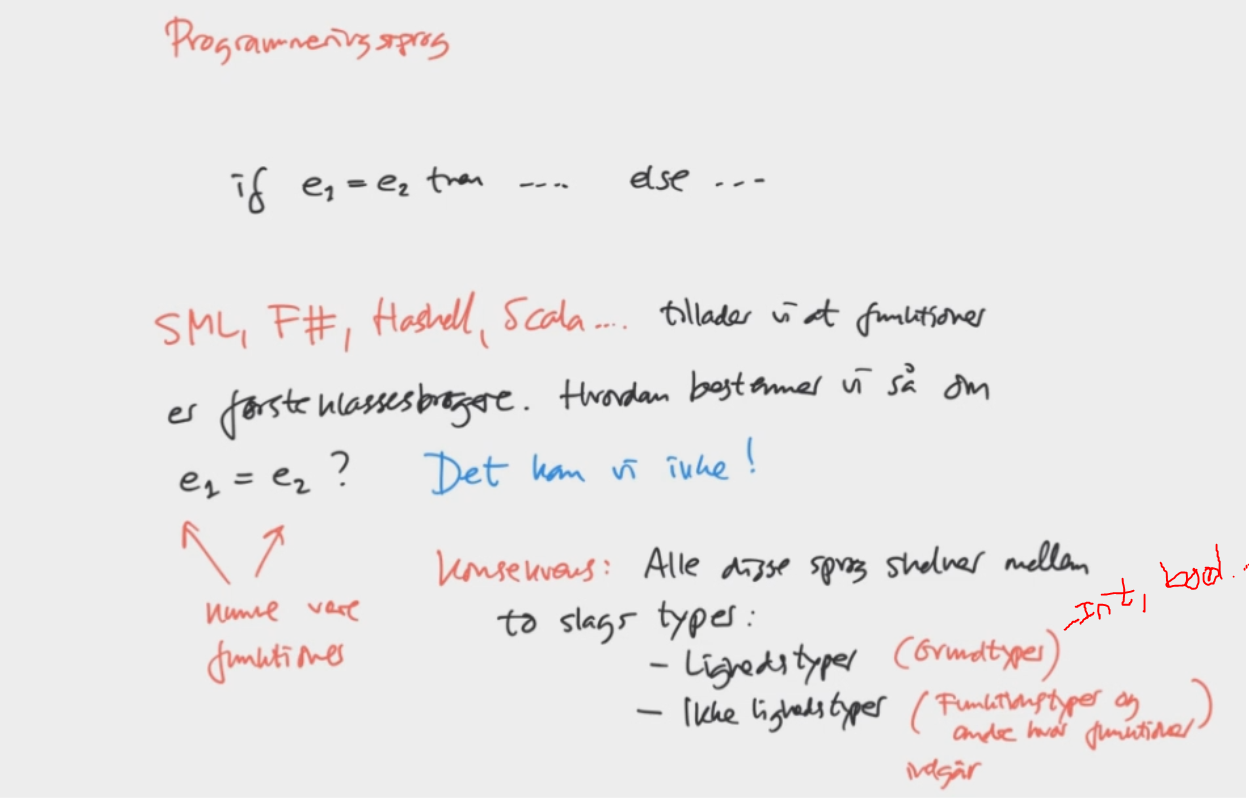 Programmeringssprog
if e₁ = e₂ then .... else ...
SML, F#, Haskell, Scala .... tillader vi at funktioner
er førsteklassesborgere. Hvordan bestemmer vi så om
e₁ = e₂ ? Det kan vi ikke!
kunne være
funktioner
Konsekvens: Alle disse sprog skelner mellem
to slags typer:
- Lighedstyper (Grundtyper) - Int, bool...
- Ikke lighedstyper (Funktionstyper og
andre hvor funktioner)
indgår